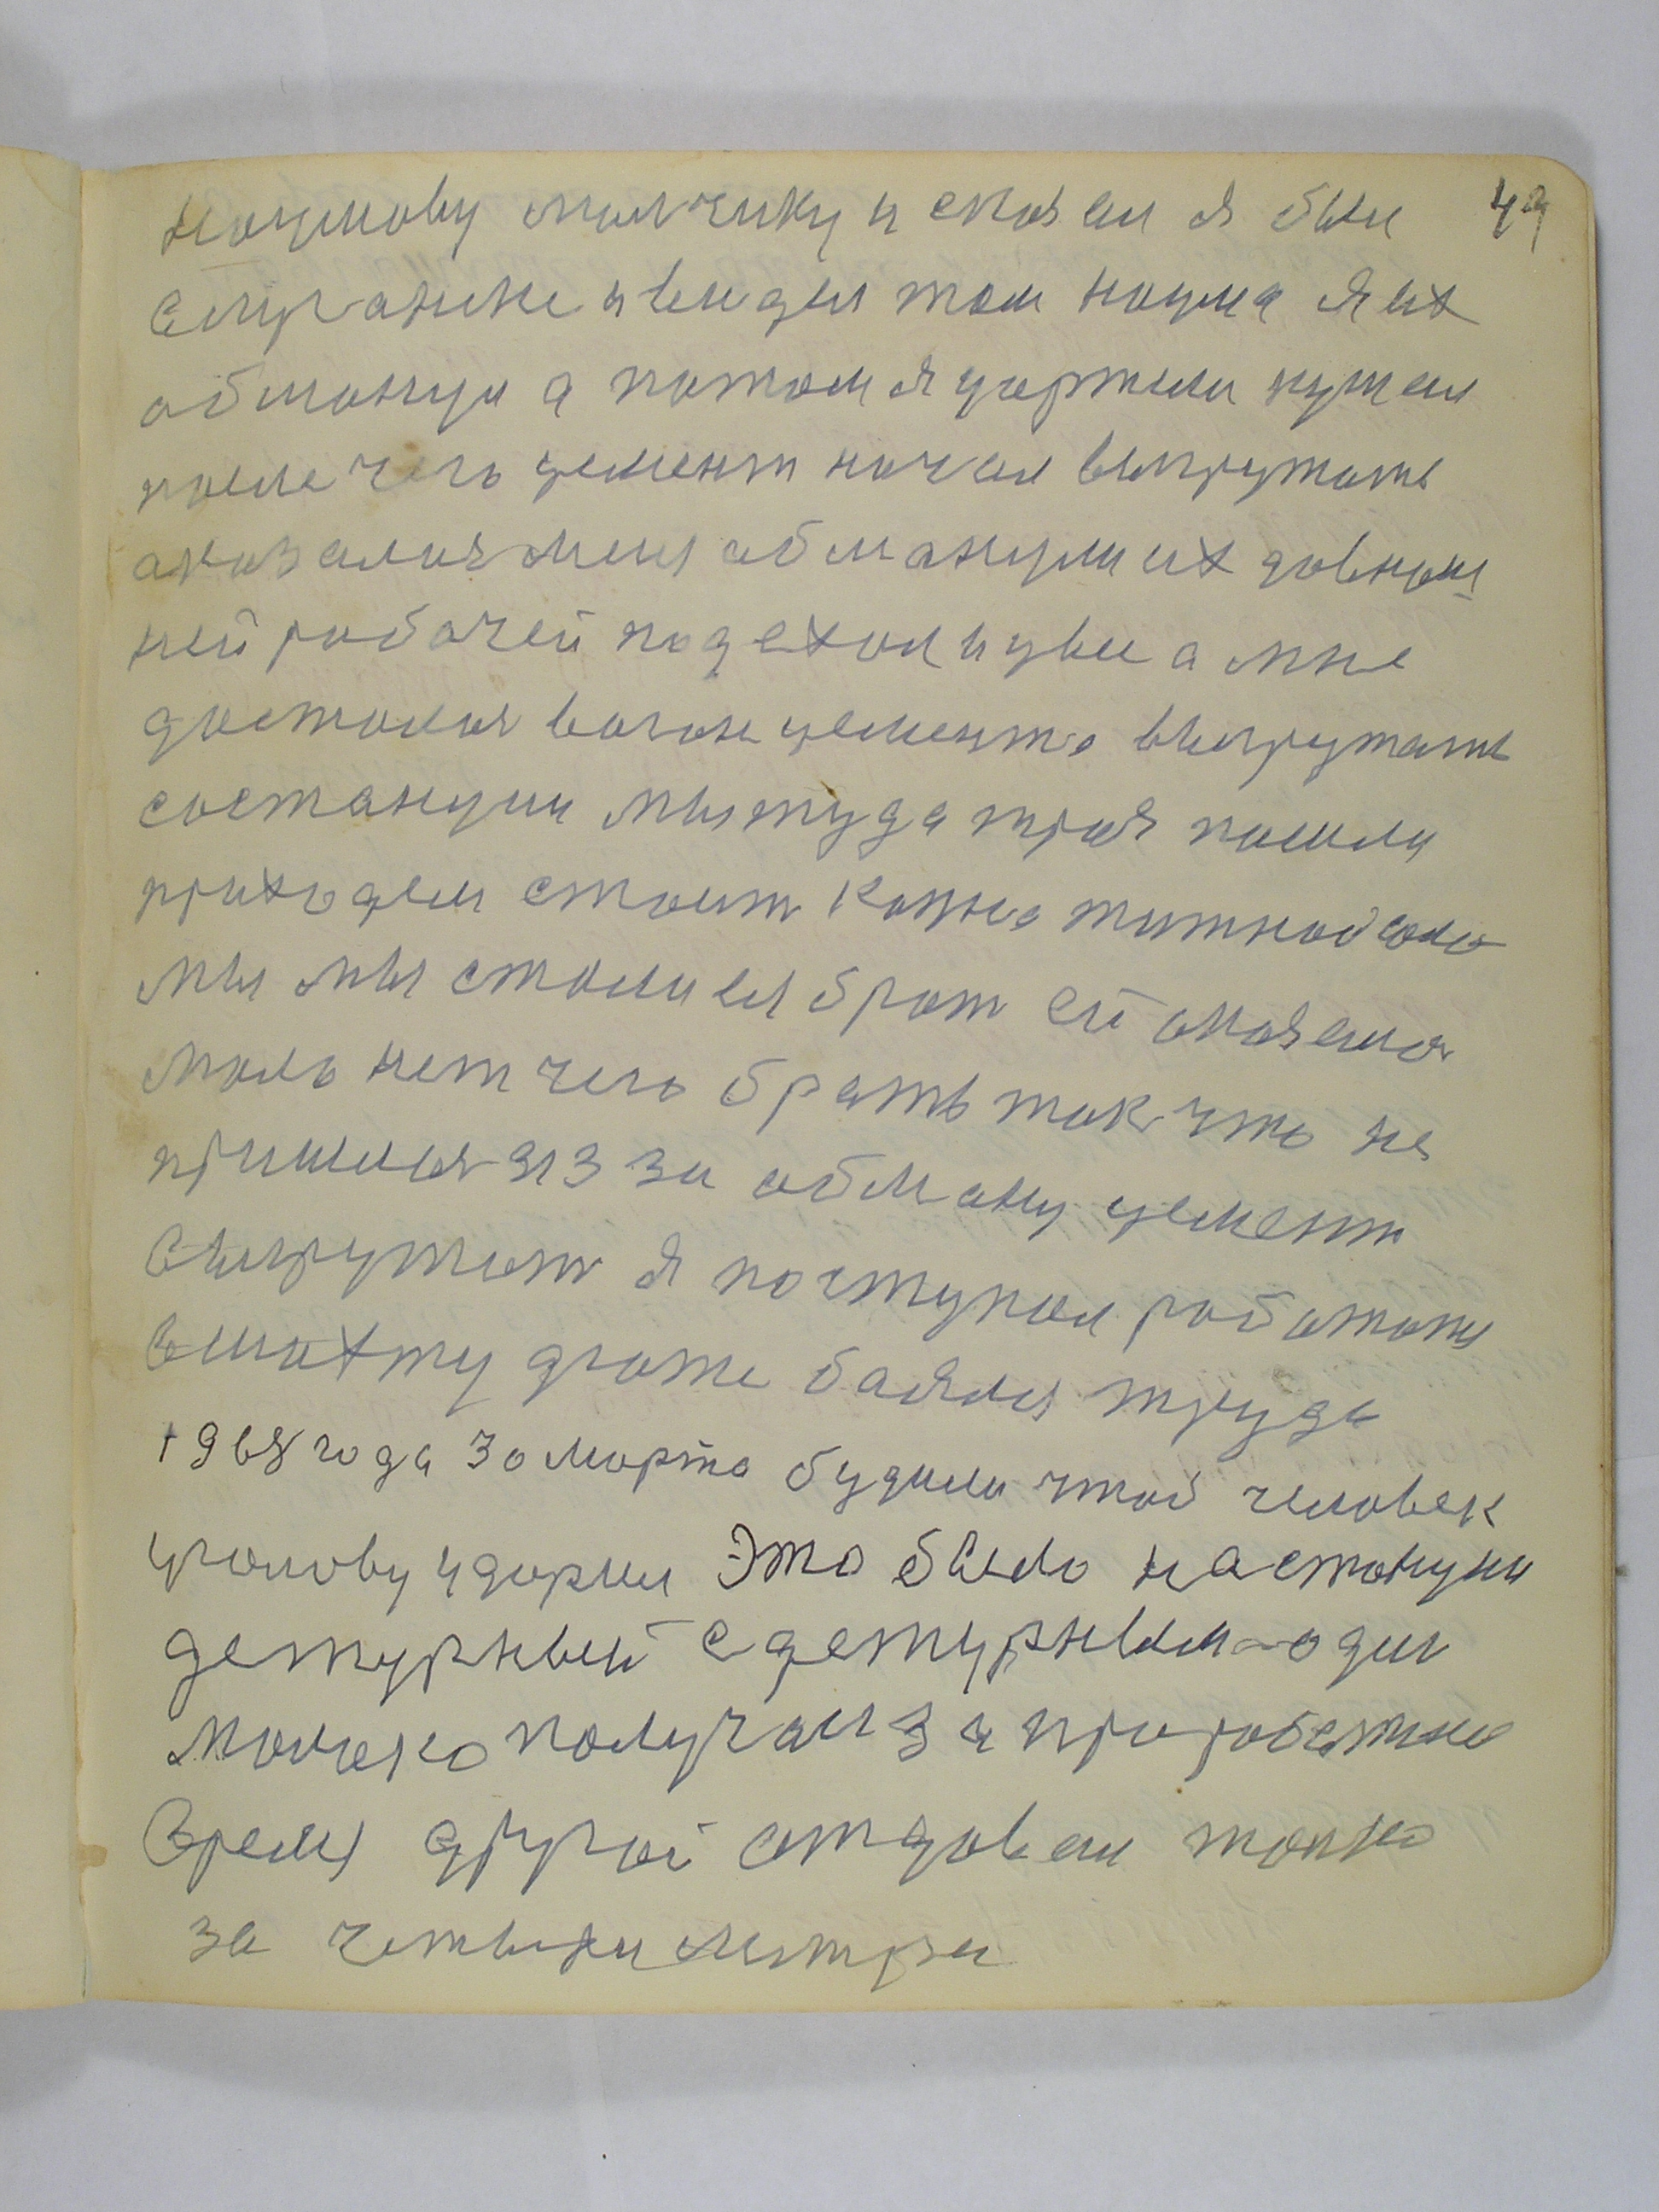 Наумову мальчику и сказал я был 49
я видел там наума я их
обманул а потом я ударжил кушал
после чего цемент начал выгружать
аказалося меня обманули их давнаш
ней рабочей подехал и увез а мне
достался вагон цемента выгружать
состанции мы туда троя пошли
приходем стоит
мы мы стали ея брат ей оказалося
мало нет чего брать так что не
пришлося из за обману цемент
выгружат я поступал работать
вшахту даже баялся труда
1968 года 30 марта будили чтоб человек
уголову ударил Это было на станции
детурный с детурным один
молоко получал за проработане
время другой отдавал толко
за четыри литры